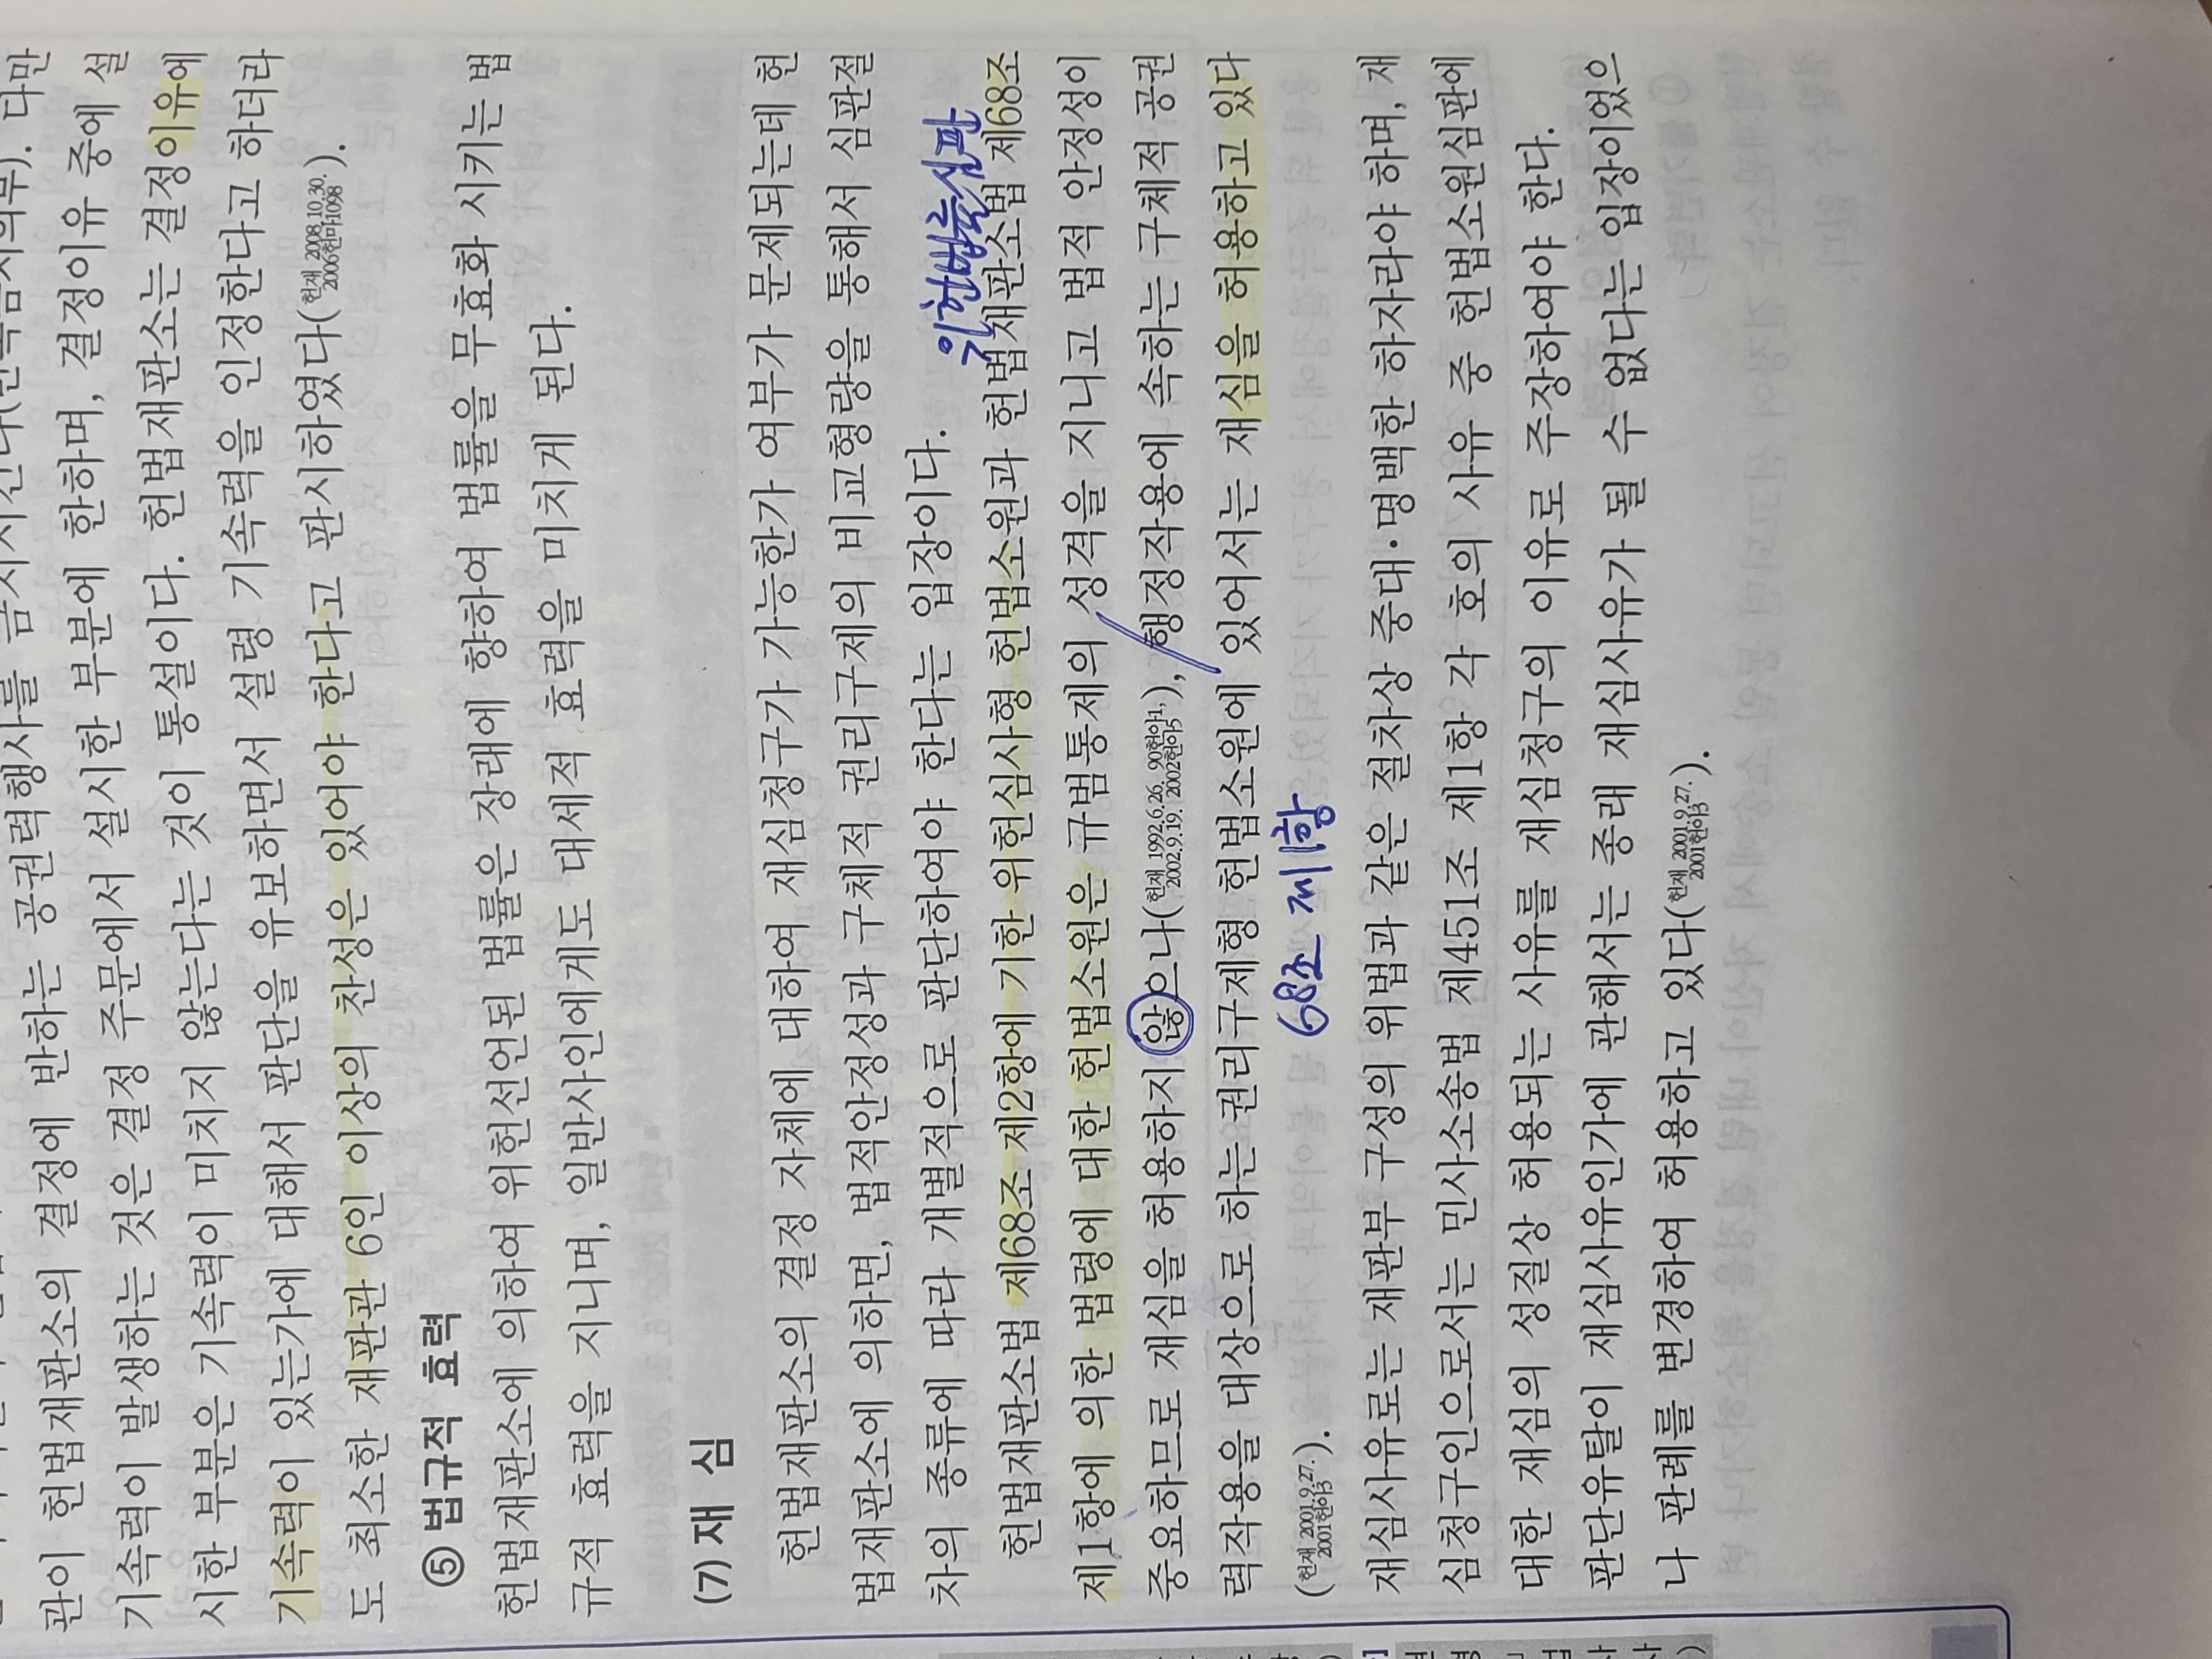 관이 헌법재판소의 결정에 반하는 공권력행사를 금지시킨다
다만
기속력이 발생하는 것은 결정 주문에서 설시한 부분에 한하며, 결정이유 중에 설
시한 부분은 기속력이 미치지 않는다는 것이 통설이다. 헌법재판소는 결정이유에
기속력이 있는가에 대해서 판단을 유보하면서 설령 기속력을 인정한다고 하더라
도 최소한 재판관 6인 이상의 찬성은 있어야 한다고 판시하였다(헌재 2008.10.30. 2006헌마1098).
⑤ 법규적 효력
헌법재판소에 의하여 위헌선언된 법률은 장래에 향하여 법률을 무효화 시키는 법
규적 효력을 지니며, 일반사인에게도 대세적 효력을 미치게 된다.
(7) 재 심
헌법재판소의 결정 자체에 대하여 재심청구가 가능한가 여부가 문제되는데 헌
법재판소에 의하면, 법적안정성과 구체적 권리구제의 비교형량을 통해서 심판절
차의 종류에 따라 개별적으로 판단하여야 한다는 입장이다.
위헌법률심판
헌법재판소법 제68조 제2항에 기한 위헌심사형 헌법소원과 헌법재판소법 제68조
제1항에 의한 법령에 대한 헌법소원은 규범통제의 성격을 지니고 법적 안정성이
중요하므로 재심을 허용하지 않으나(헌재 1992.6.26, 90헌아1, 2002.9.19, 2002헌아5), 행정작용에 속하는 구체적 공권
력작용을 대상으로 하는 권리구제형 헌법소원에 있어서는 재심을 허용하고 있다
68조 제1항
(헌재 2001.9.27. 2001헌아3).
재심사유로는 재판부 구성의 위법과 같은 절차상 중대·명백한 하자라야 하며, 재
심청구인으로서는 민사소송법 제451조 제1항 각 호의 사유 중 헌법소원심판에
대한 재심의 성질상 허용되는 사유를 재심청구의 이유로 주장하여야 한다.
판단유탈이 재심사유인가에 관해서는 종래 재심사유가 될 수 없다는 입장이었으
나 판례를 변경하여 허용하고 있다(헌재 2001.9.27. 2001헌아3).